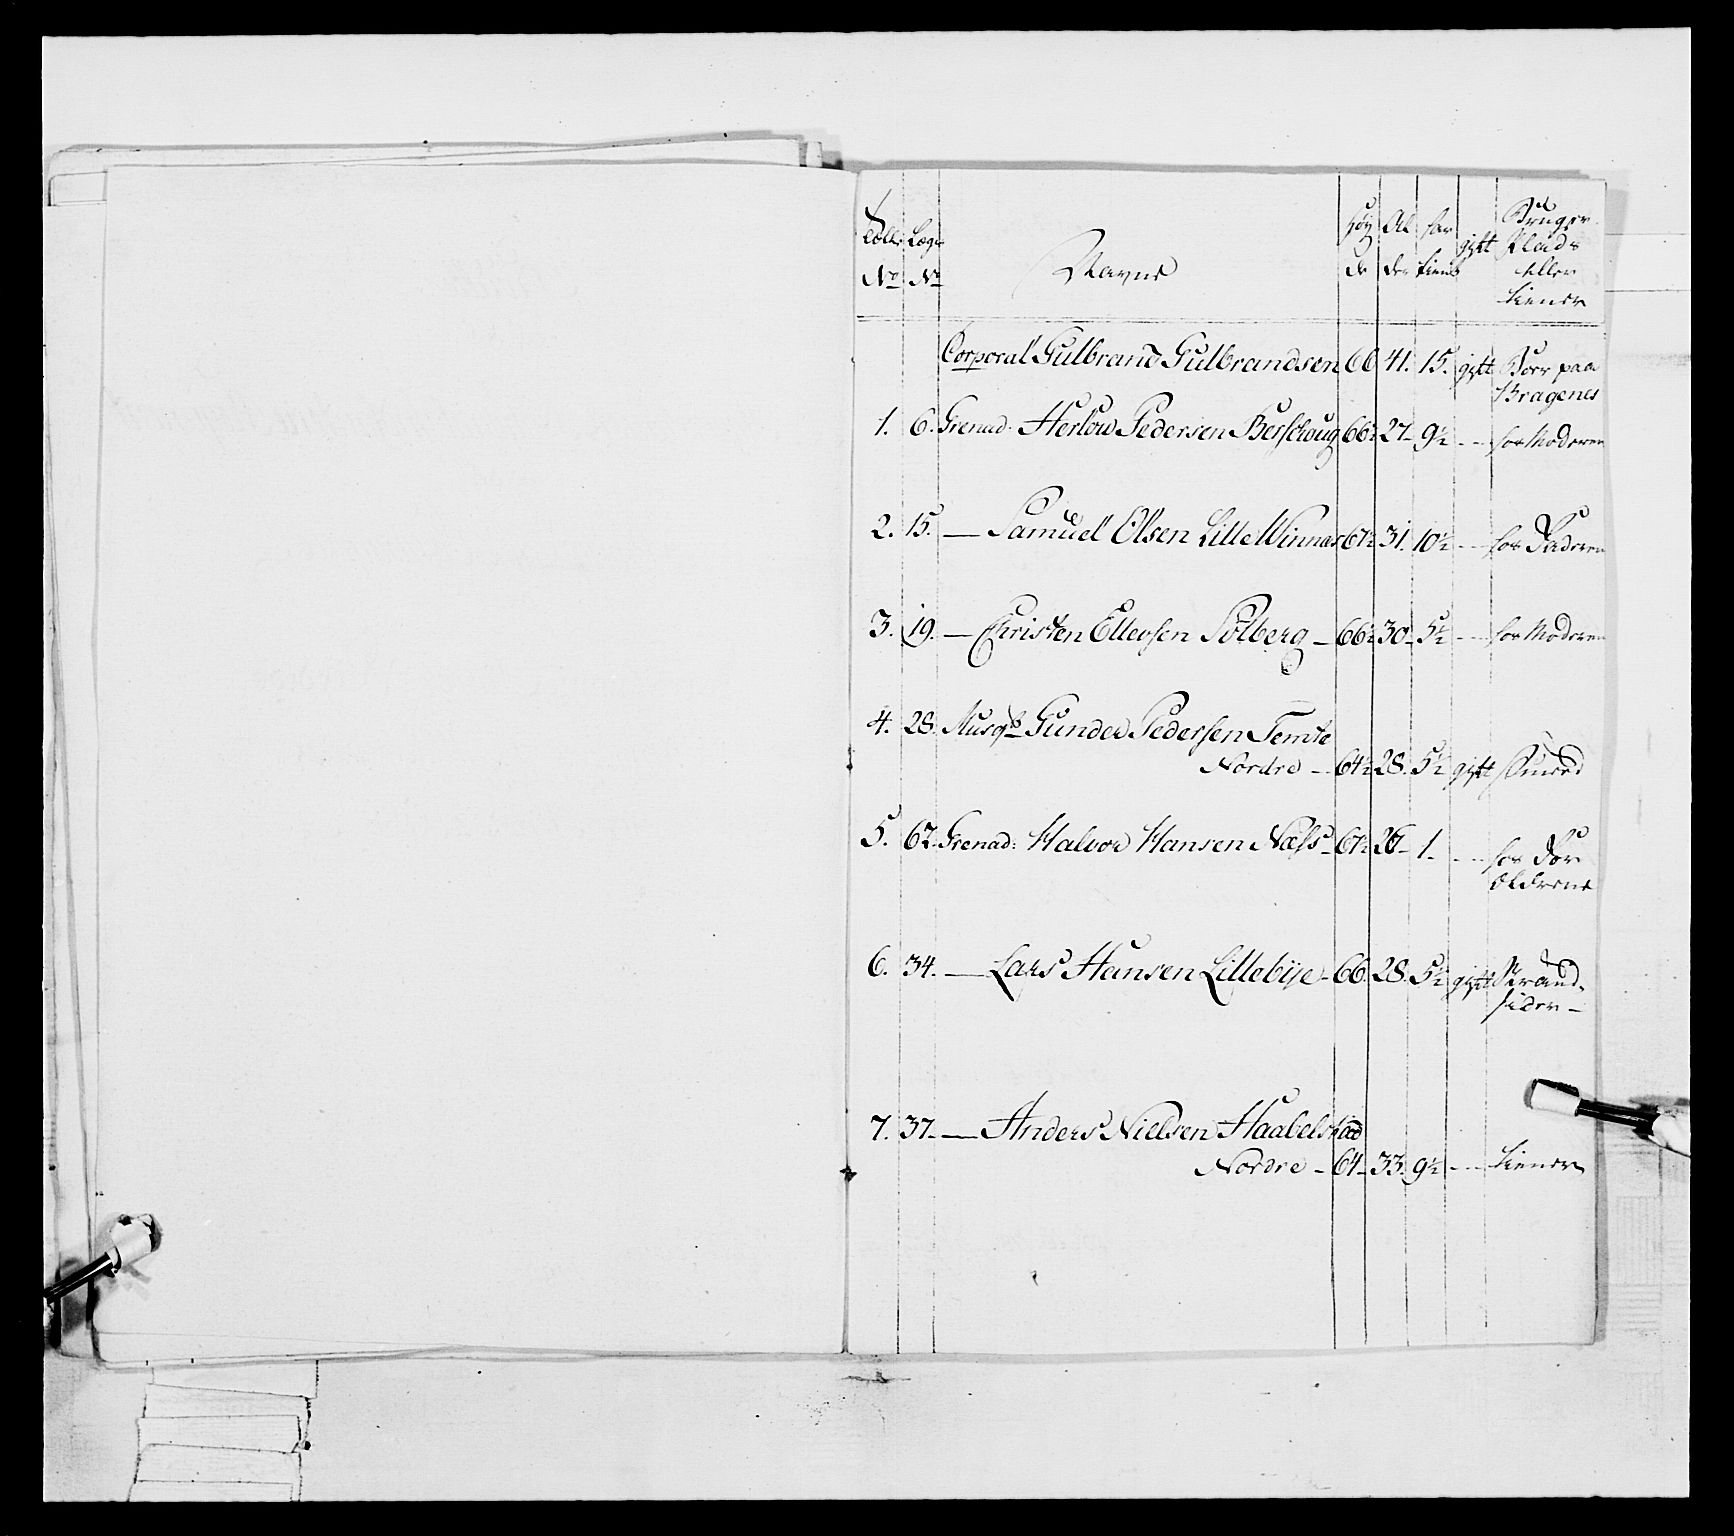 Rolle No Lægs No Navne Høy de Al der har tient gift Bruger Plads eller tiener
Corporal Gulbrand Gulbrandsen 66 41. 15. gift Boer paa Bragenes
1. 6. Grenad. Herlow Pedersen Berschoug 66½ 27 9½ -- hos Moderen
2. 15. — Samuel Olsen Lille Winnas 67½ 31. 10½ -- hos Faderen
3. 19. — Christen Ellevsen Solberg — 66½ 30 5½ -- hos Moderen
4. 28. Musqt Gunder Pedersen Temte
Nordre — 64½ 28. 5½ gift
5. 62. Grenad: Halvor Hansen Næss — 67½ 26 1. -- hos For ældrene
6. 34. — Lars Hansen Lillebye — 66. 28. 5½ gift Strand- sider —
7. 37. — Anders Nielsen Haabelstad
Nordre — 64 33. 9½ -- tiener